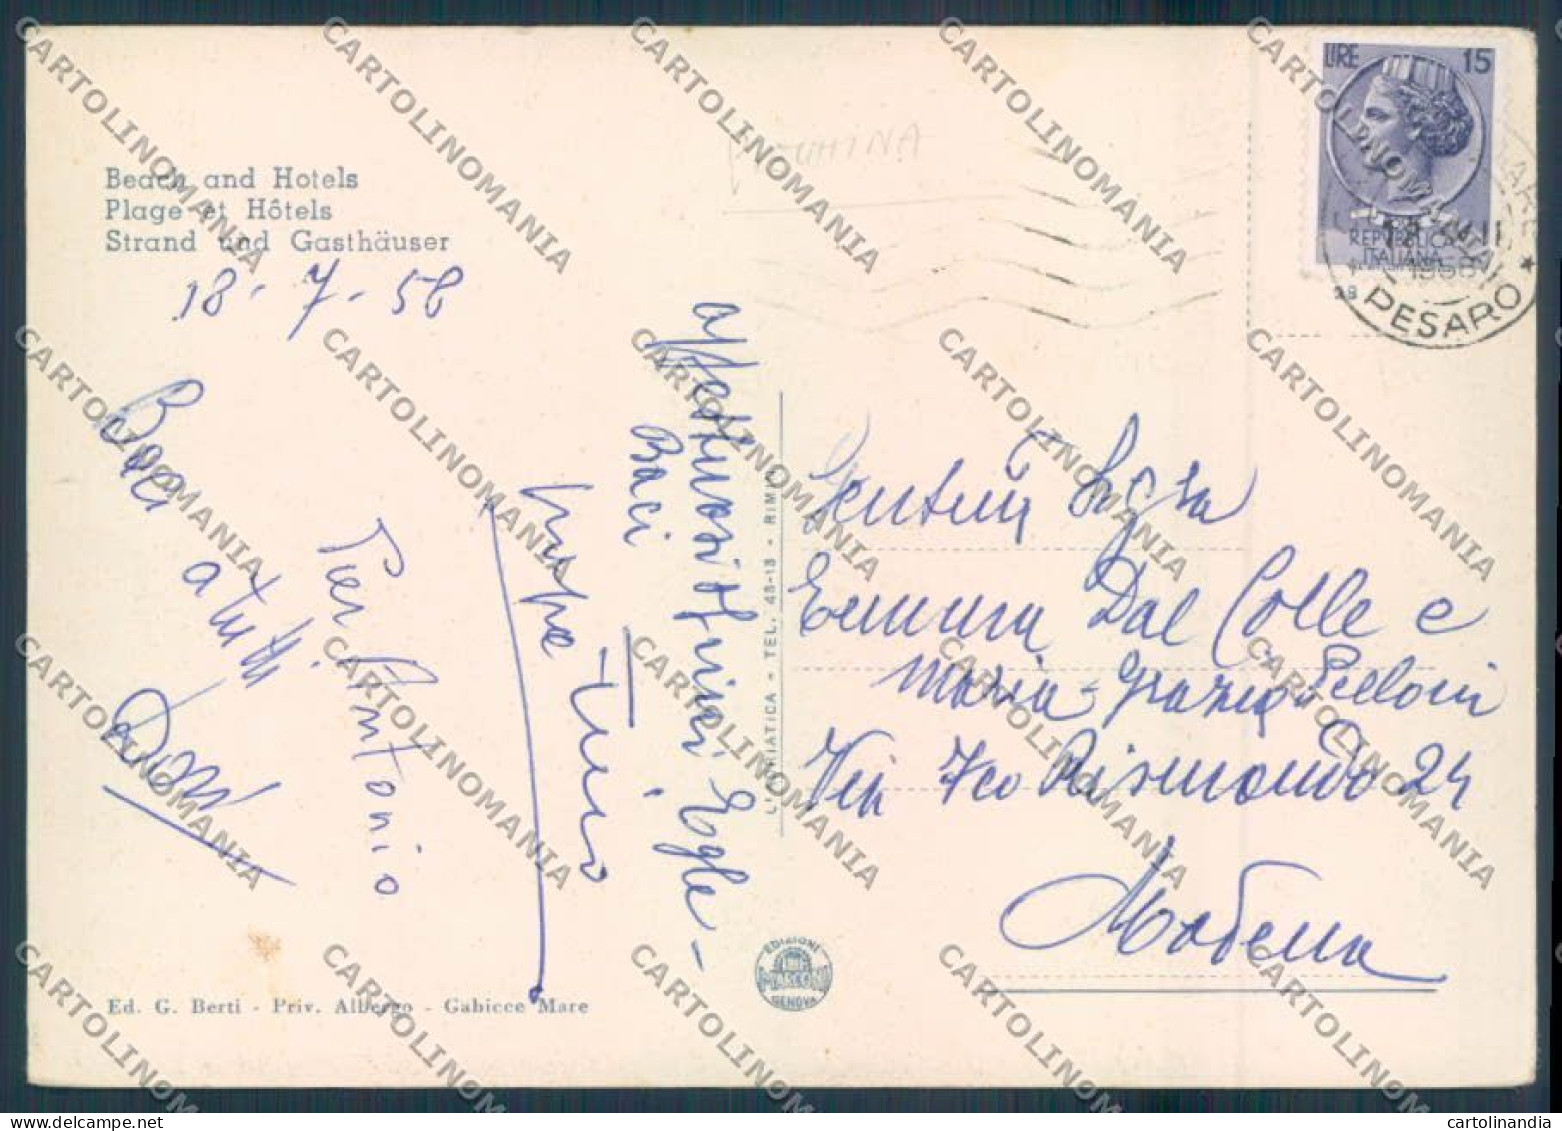 Beach and Hotels
Plage et Hôtels
Strand und Gasthäuser
18-7-56
Baci
a tutti
Pier Antonio
affettuosi
Baci
Egle-
LIRE 15
REPUBBLICA
ITALIANA
PESARO
Sigra
Emma Dal Colle e
Maria-Grazia Pelloni
Via Fco Rismondo 24
Modena
L'ADRIATICA - TEL. 43-13 - RIMINI
EDIZIONI
MARCONI
GENOVA
Ed. G. Berti - Priv. Albergo - Gabicce Mare
CARTOLINOMANIA
cartolinandia